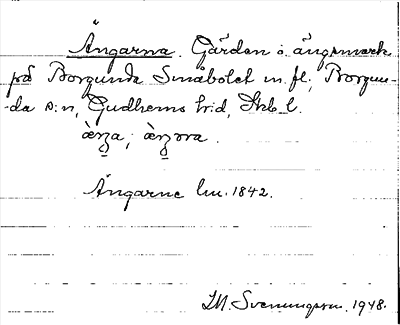 Ängarna. Gärden o. ängsmark
på Borgunda Småbolet m. fl., Borgun-
da s:n, Gudhems hd, Skb l.
Ängarne lm. 1842.
M. Svenungson. 1948.